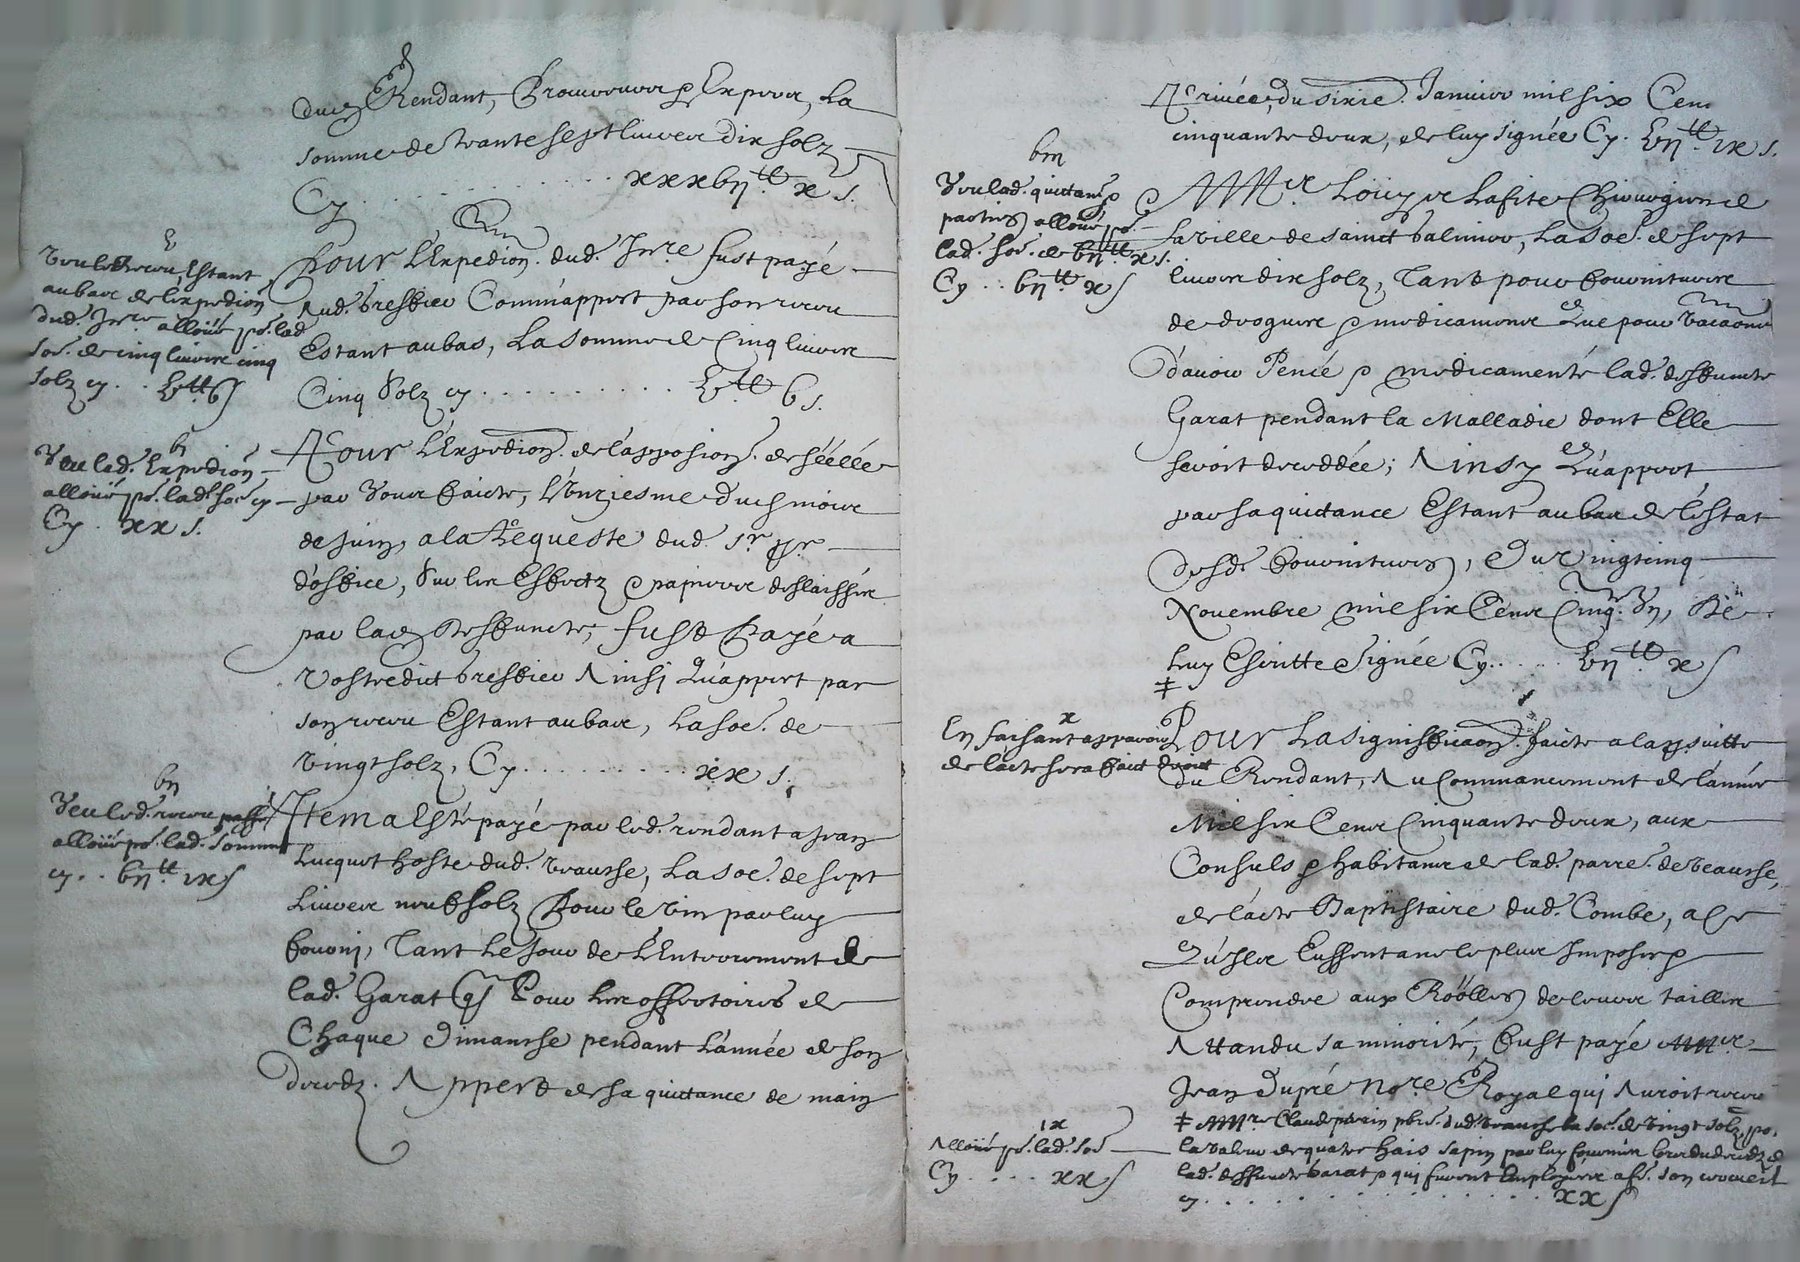 dud. Rendant, Proucureur & Expert, La
somme de trante sept livres dix solz
Cy . . . . . . . . . . . xxxvii.tt x s.
v
Veu led. receu Estant
au bas de l'expedion
dud. Inre. alloüé po. lad.
so.e de cinq livres cinq
solz cy . . v.tt v s
Pour L'Expedion. dud. Inv.re fust payé
Aud. Greffier Comm'appert par son receu
Estant au bas, La somme de Cinq livres
Cinq Solz cy . . . . . . . . . . v.tt v s.
vi
Veu lad. Expedion,
alloüé po. lad. so.e cy
Cy . xx s.
Pour L'Expedion. de l'apposion. de séellé
par Vous faicte, L'Unziesme du mois
de Juin, a la Requeste dud. Sr. pr.
d'office, Sur les Effectz & papiers delaissés
par lad. Deffuncte, fust Payé a
Vostredict Greffier Ainsi Qu'appert par
son receu Estant au bas, La so.e de
Vingt solz, Cy . . . . . . . . . xx s.
vii
Veu led. receu passé
alloüé po. lad. Somme
cy . . vii.tt ix s
Item a Esté payé par led. rendant a Jean
Lucquet hoste dud. Veausse, La so.e de sept
Livres neuf solz Pour le vin par luy
fourni, Tant Le Jour de L'Enterrement de
lad. Garat Que Pour Les offertoires de
Chaque Dimanche pendant L'année de son
decedz. Appert de sa quittance de main
Privée, du sixie. Janvier mil six Cens
cinquante deux, de luy signée Cy . vii.tt ix s.
viii
Veu lad. quittance &
parties alloüé po.
lad. so.e de vii.tt x s.
Cy . . vii.tt x s
A M.re Loüys Lafite Chirurgien de
la ville de sainct Galmier, La so.e de sept
livres dix solz, Tant pour fournitures
de drogues & medicamens Que pour vacaons
d'avoir Pencé & medicamenté lad. deffuncte
Garat pendant la Malladie dont Elle
seroit deceddée; Ainsy Qu'appert
par sa quittance Estant au bas de l'Estat
desd. fournitures, Du Vingtcinq
Novembre mil six Cens Cinq.te Un, De
Luy Escritte Signée Cy . . . . . vii.tt x s
‡
x
En faisant apparoir
de l'acte sera faict droict
Pour La signifficaon. faicte a la pour suitte
du Rendant, Au Commancement de l'année
Mil six Cens Cinquante deux, aux
Consuls & habitans de lad. parre. de Veausse,
de l'acte Baptistaire dud. Combe, a Ce
Qu'Ils n'Eussent a ne le plus Imposer &
Comprendre aux Röolles de leurs tailles
Attandu sa minorité, fust payé a M.re
Jean Dupré No.re Royal qui Auroit receu
ix
Alloüé po. lad. so.e
Cy . . . . xx s
‡ A M.re Claude perrin pbre. dud. Veausse la so.e de vingt solz, po.
la valeur de quatre hais sapin par luy fournies lors du decedz de
lad. deffuncte Garat & qui furent Employés a f.e son cercueil
cy . . . . . . . . . . . . . . . xx s